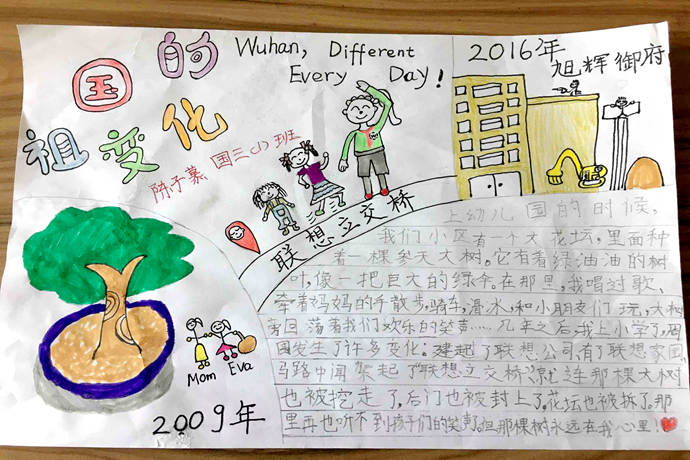 祖国的变化
Wuhan, Different
Every Day!
2016年
旭辉御府
陈子慕 国三(1)班
联想立交桥
上幼儿园的时候,
我们小区有一个大花坛,里面种
着一棵参天大树。它有着绿油油的树
叶,像一把巨大的绿伞。在那里,我唱过歌、
牵着妈妈的手散步,骑车,滑冰,和小朋友们玩,大树
旁回荡着我们欢乐的笑声……几年之后,我上小学了,周
围发生了许多变化:建起了联想公司,有了联想家园,
马路中间架起了“联想立交桥”,就连那棵大树
也被挖走了,后门也被封上了。花坛也被拆了。那
里再也听不到孩子们的笑声。但那棵树永远在我心里!
Mom Eva
2009年